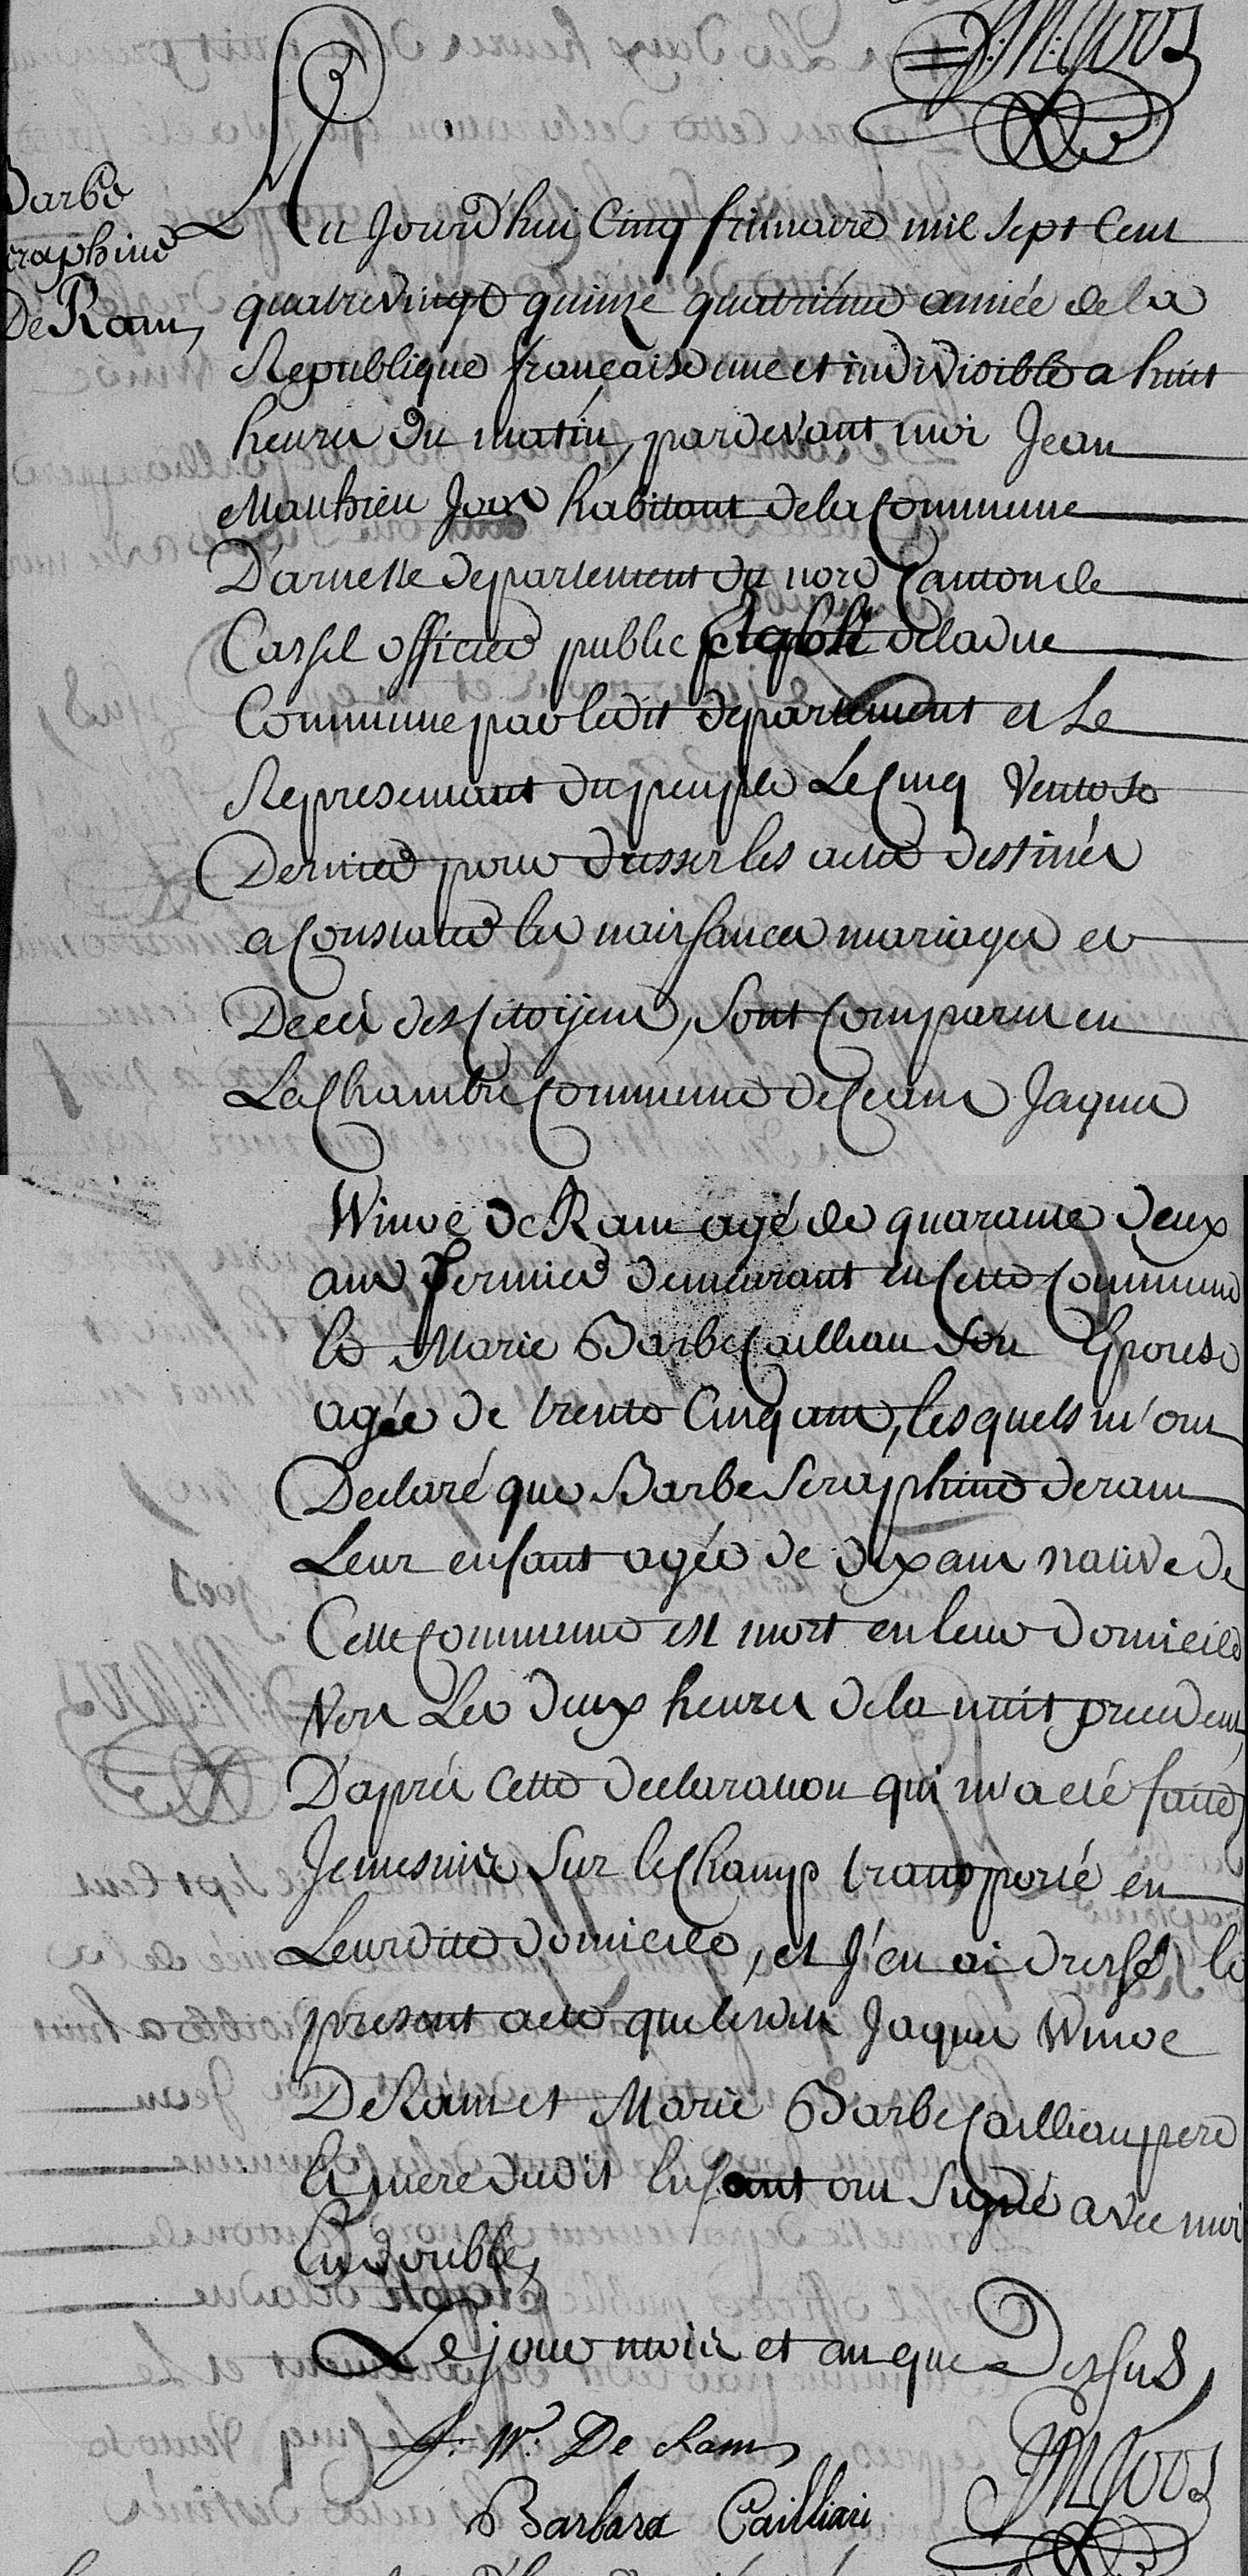 J: M: Joos
Barbe
Seraphine
De Ram,
Au Jourd'hui Cinq frimaire mil sept Cent
quatrevingt quinze quatriéme année de la
Republique française une et indivisible a huit
heures du matin, pardevant moi Jean
Mathieu Joos habitant de la Commune
D'arnelle departement du nord Canton de
Cassel officier public de ladite
Commune par ledit departement et Le
Representant du peuple Le Cinq Ventose
Dernier pour dresser les actes destinés
a Constater les naissances mariages et
Decés des Citoijens, sont Comparus en
La Chambre Commune de Ceans Jaques
Winoc De Ram agé de quarante deux
ans fermier demeurant en Cette Commune
Et Marie Barbe Cailliau son Epouse
agée de trente Cinq ans, lesquels m'ont
Declaré que Barbe Seraphine deram
Leur enfant agée de dix ans native de
Cette Commune est mort en leur Domicile
Vers Les deux heures de la nuit precedent,
D'aprés Cette declaration qui m'a eté faite,
Je me suis sur le Champ transporté en
Leur dite domicile, et J'en ai dressé le
present acte que lesdits Jaques Winoc
DeRam et Marie Barbe Cailliau pere
Et mere dudit Enfant ont signé avec moi
En double,
Le jour mois et an que Dessus,
J: W: De Ram
JM Joos
Barbara Cailliau